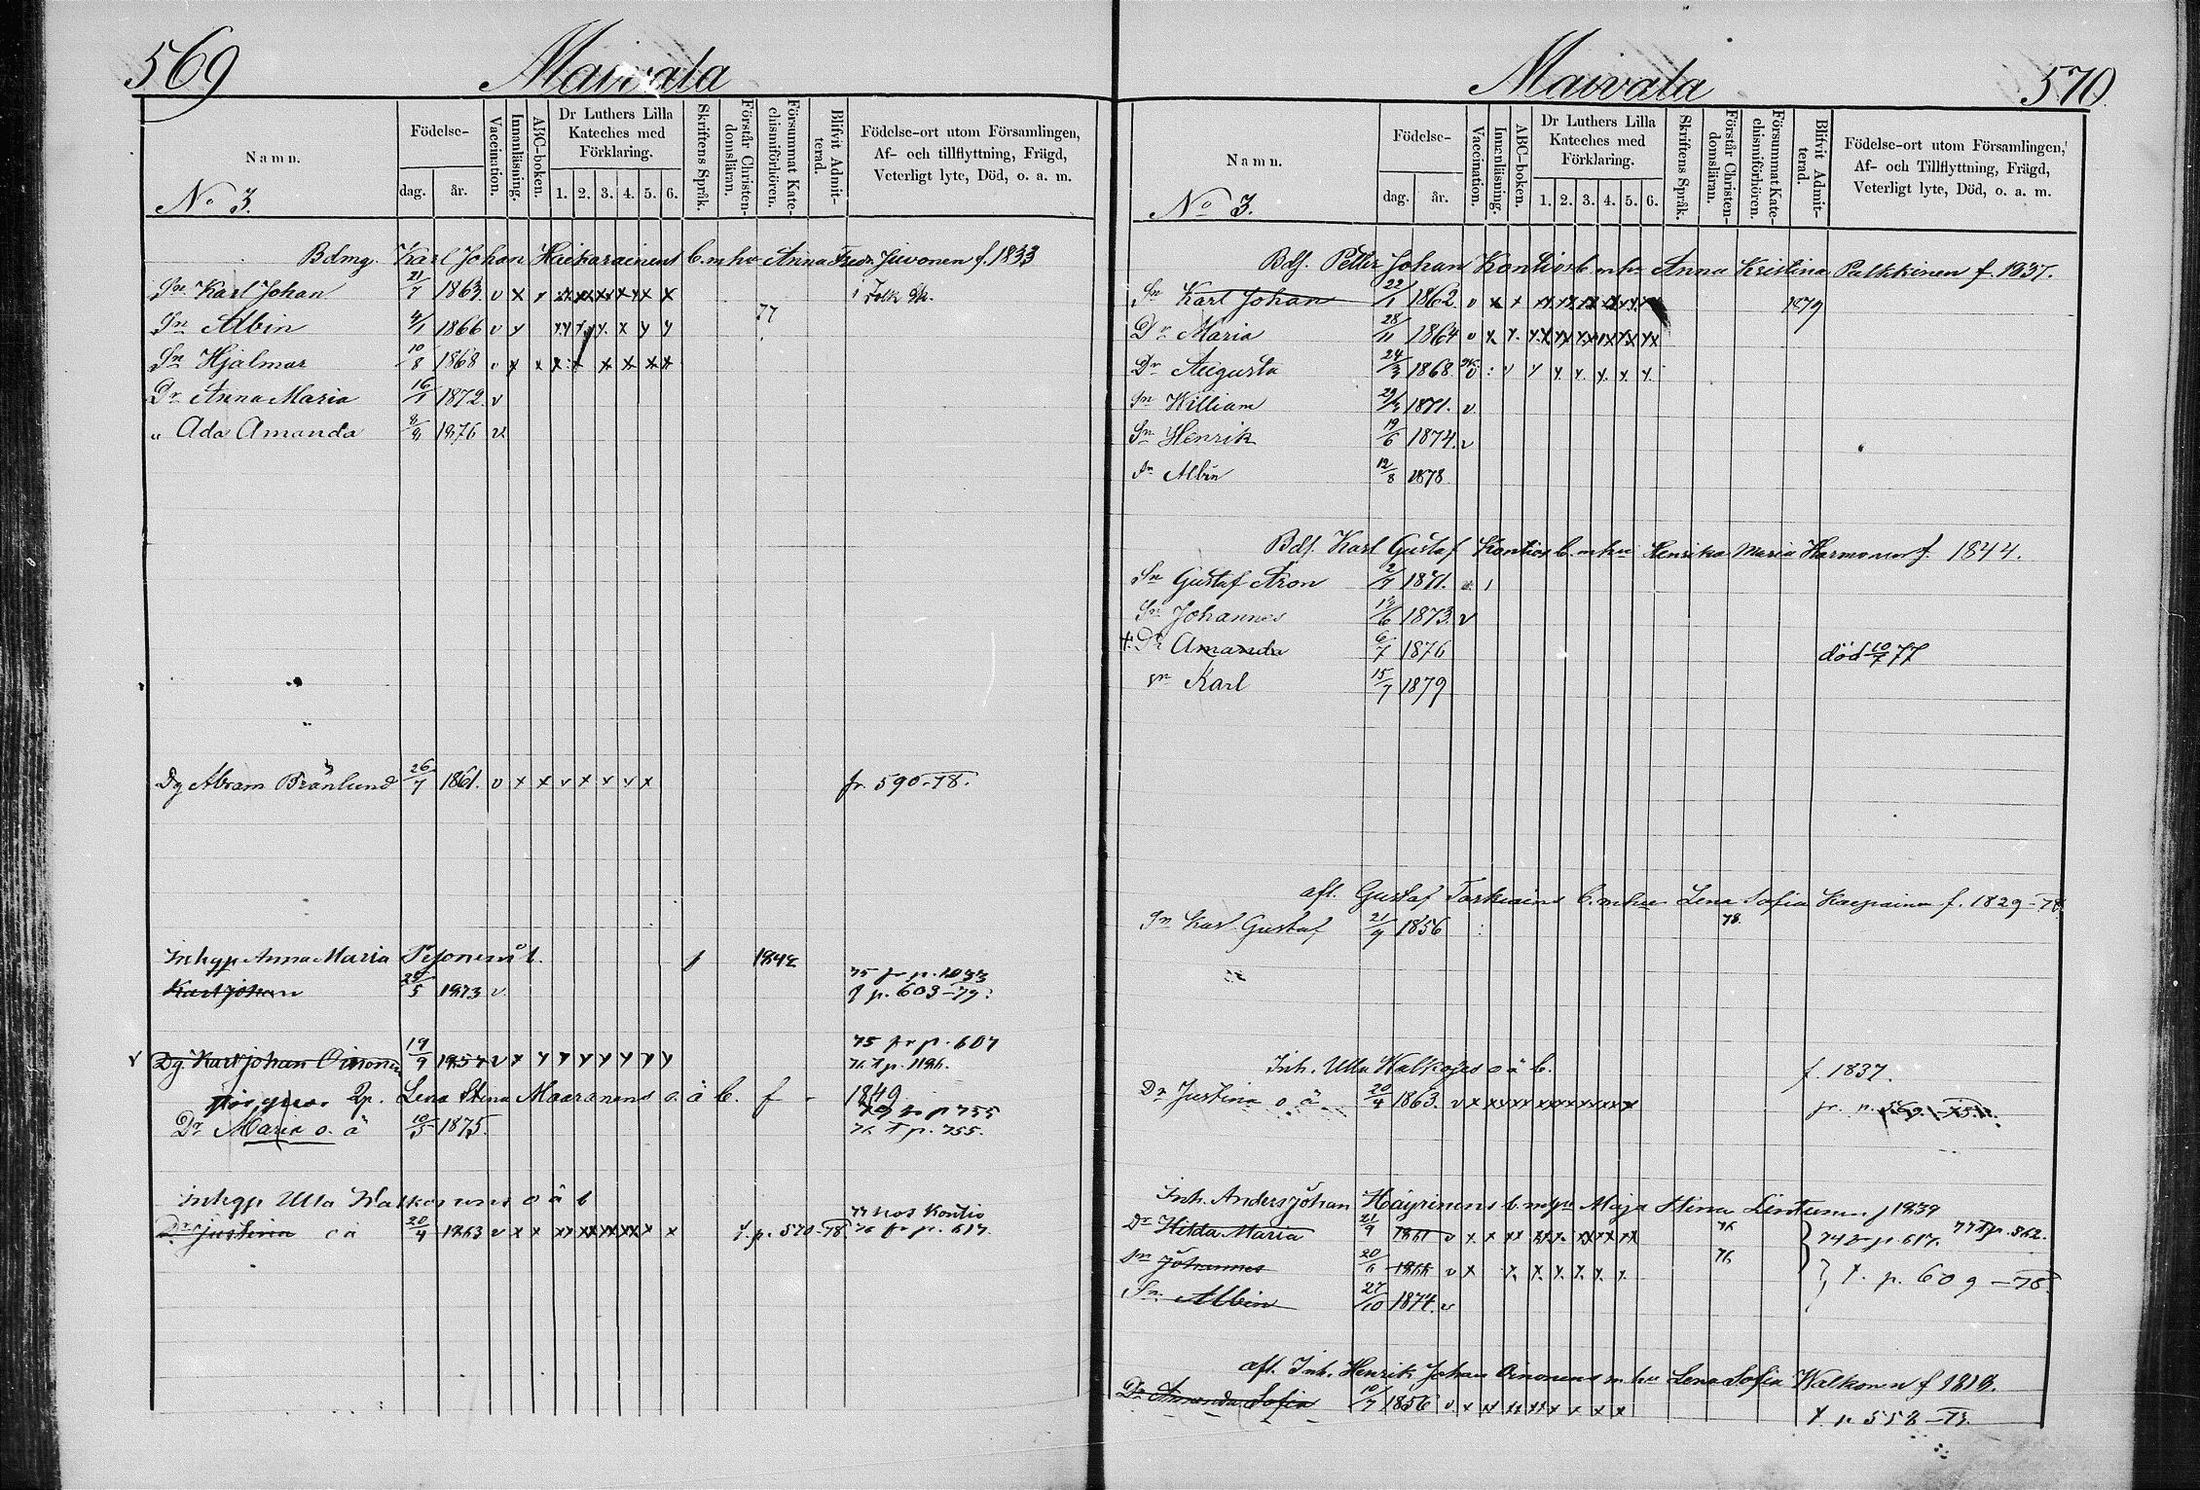 569
Maivala
Namn.
Födelse-
dag.
år.
Vaccination.
Innanläsning.
ABC-boken.
Dr Luthers Lilla Kateches med Förklaring.
1. 2. 3. 4. 5. 6.
Skriftens Språk.
Förstår Christen-domsläran.
Försummat Kate-chismiförhören.
Blifvit Admit-terad.
Födelse-ort utom Församlingen, Af- och tillflyttning, Frägd, Veterligt lyte, Död, o. a. m.
No 3.
Bdmg. Karl Johan Haikarainens b. m. hu Anna Fredr. Juvonen f. 1833
Sn Karl Johan 21/7 1863 v x x x x x x x x i Folk Sk.
Sn Albin 4/1 1866 v 77
Sn Hjalmar 10/8 1868 v x x x x x x x x
Dr Anna Maria 16/1 1872. v
" Ada Amanda 1876 v
Dg Abram Brånlund 26/7 1861. v x x v x x v x fr. 590-78.
Inhyp Anna Maria 1842
75 fr p. 1033
Karl Johan 28/5 1873 v p. 603-79.
75 fr p. 607
Dg. Karl Johan Oinonen 19/9 1857 v
Lena Stina Maaranens o. ä b. f 1849
p 755
Dr Maria o. ä 10/5 1875. 76 T p. 755.
Inhyp Ulla Walkosens o ä b
77 hos Kontio
Dr Justina o ä 20/4 1863 v x x f. p. 570-78. 76 fr p. 617.
570.
Maivala
Namn.
Födelse-
dag.
år.
Vaccination.
Innanläsning.
ABC-boken.
Dr Luthers Lilla Kateches med Förklaring.
1. 2. 3. 4. 5. 6.
Skriftens Språk.
Förstår Christen-domsläran.
Försummat Kate-chismiförhören.
Blifvit Admit-terad.
Födelse-ort utom Församlingen, Af- och Tillflyttning, Frägd, Veterligt lyte, Död, o. a. m.
No 3.
Bdf. Petter Johan Kontios b. m. hu Anna Kristina Pulkkinen f. 1837.
Sn Karl Johan 22/1 1862. v 1879
Dr Maria 28/11 1864 v
Dr Augusta 24/3 1868
Sn William 1871. v
Sn Henrik 19/6 1874. v
Sn Albin 12/8 1878
Bdf. Karl Gustaf Kontios b. m. hu Henrika Maria Harmonen f. 1844.
Sn Gustaf Aron 2/7 1871.
Sn Johannes 1873. v
+ Dr Amanda 6/7 1876 död 10/7 77
Sn Karl 15/7 1879
afl. Gustaf Tarkiains b. m. hu Lena Sofia f. 1829-78
Sn Karl Gustaf 21/9 1856 78
Inh. Ulla Walkoses o ä b. f. 1837.
Dr Justina o. ä 20/4 1863. v
Inh. Anders Johan Häyrinens b. m. hu Maja Stina f 1839
Dr Hilda Maria 21/9 1861 v 76 74 fr p. 617. 77 T p. 862.
Sn Johannes 20/6 1866 v x 76 f. p. 609-78.
Sn Albin 27/10 1874. v
afl. Inh. Henrik Johan Oinonens m. hu Lena Sofia Walkonen f 1816.
Dr Amanda Sofia 10/7 1856 v.
f. p 558-78.